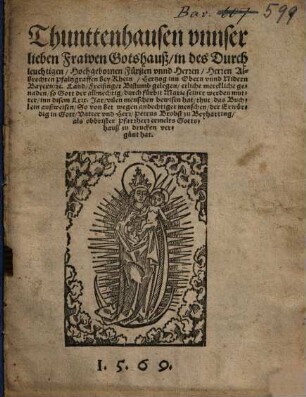 Bav. 667 599
Thunttenhausen vnnser
lieben Frawen Gotshauß/ in des Durch
leuchtigen/ Hochgebornen Fürsten vnnd Herren/ Herren Al-
brechten Pfaltzgraffen bey Rhein/ Hertzog inn Obern vnnd Nidern
Bayern/ꝛc. Land/ Freisinger Bistumb gelegen/ etliche merckliche ge-
naden/ so Gott der allmechtig/ durch fürbit Marie seiner werden mut-
ter/ inn disem Lxix. Jar/ vilen menschen bewisen hat/ thut das Büch-
lein außweisen/ So von der wegen andechtiger menschen/ der Erwür-
dig in Gott Vatter vnd Herr/ Petrus Brobst zu Beyhartting/
als obbrister Pfarrherr ermelts Gotts-
hauß in drucken ver-
günt hat.
1. 5. 6 9.